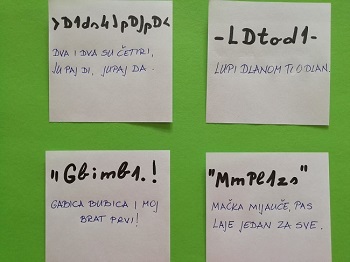 >D1ds4JpDJpD<
DVA I DVA SU ČETIRI,
JUPAJ DI, JUPAJ DA.
-LDtod1-
LUPI DLANOM TI O DLAN.
"Gbimb1.!
GABICA BUBICA I MOJ
BRAT PRVI!
"MmPl1zs"
MAČKA MIJAUČE, PAS
LAJE JEDAN ZA SVE.